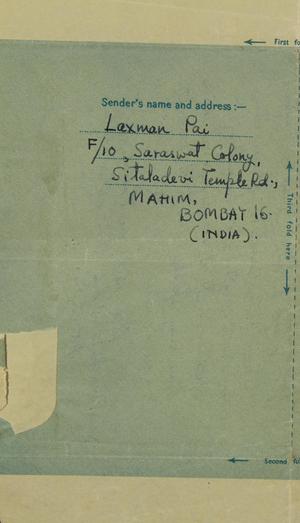 First fo
Sender's name and address:—
Laxman Pai
F/10, Saraswat Colony,
Sitaladevi Temple Rd.,
MAHIM,
BOMBAY 16.
(INDIA).
Third fold here
Second fo